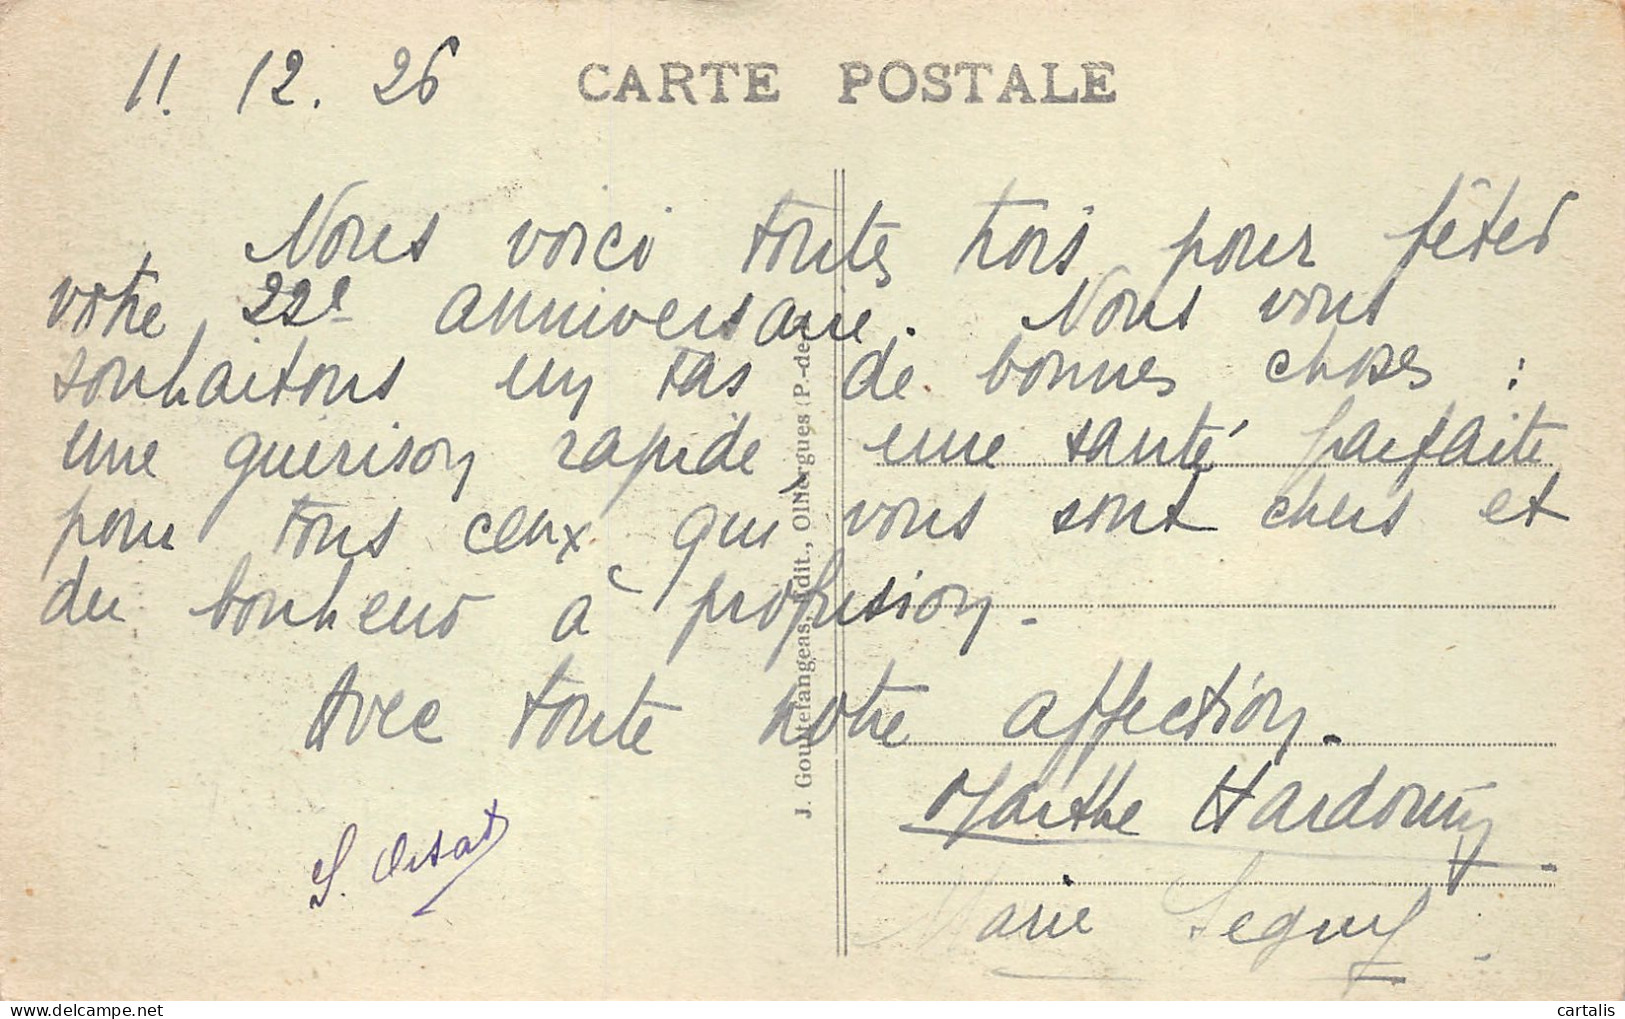 11. 12. 26
CARTE POSTALE
Nous voici toutes trois pour fêter
votre 22e anniversaire. Nous vous
souhaitons un tas de bonnes choses :
une guérison rapide une santé parfaite
pour tous ceux qui vous sont chers et
du bonheur à profusion.
Avec toute notre affection.
Marthe Hardouin
S.
Marie Seguy
J. Gouttefangeas, Édit., Olliergues (P.-de-
cartalis